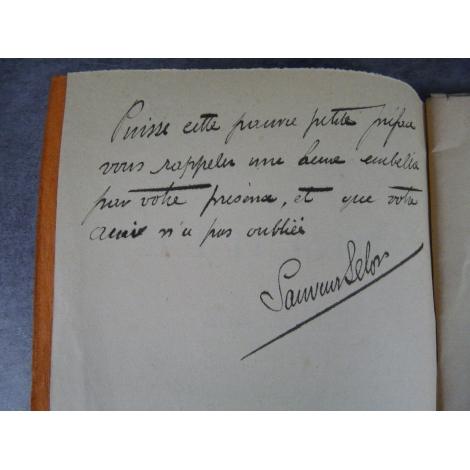 Puisse cette pauvre petite préface
vous rappeler une heure embellie
par votre présence, et que votre
amie n'a pas oubliée
Sauveur Selon